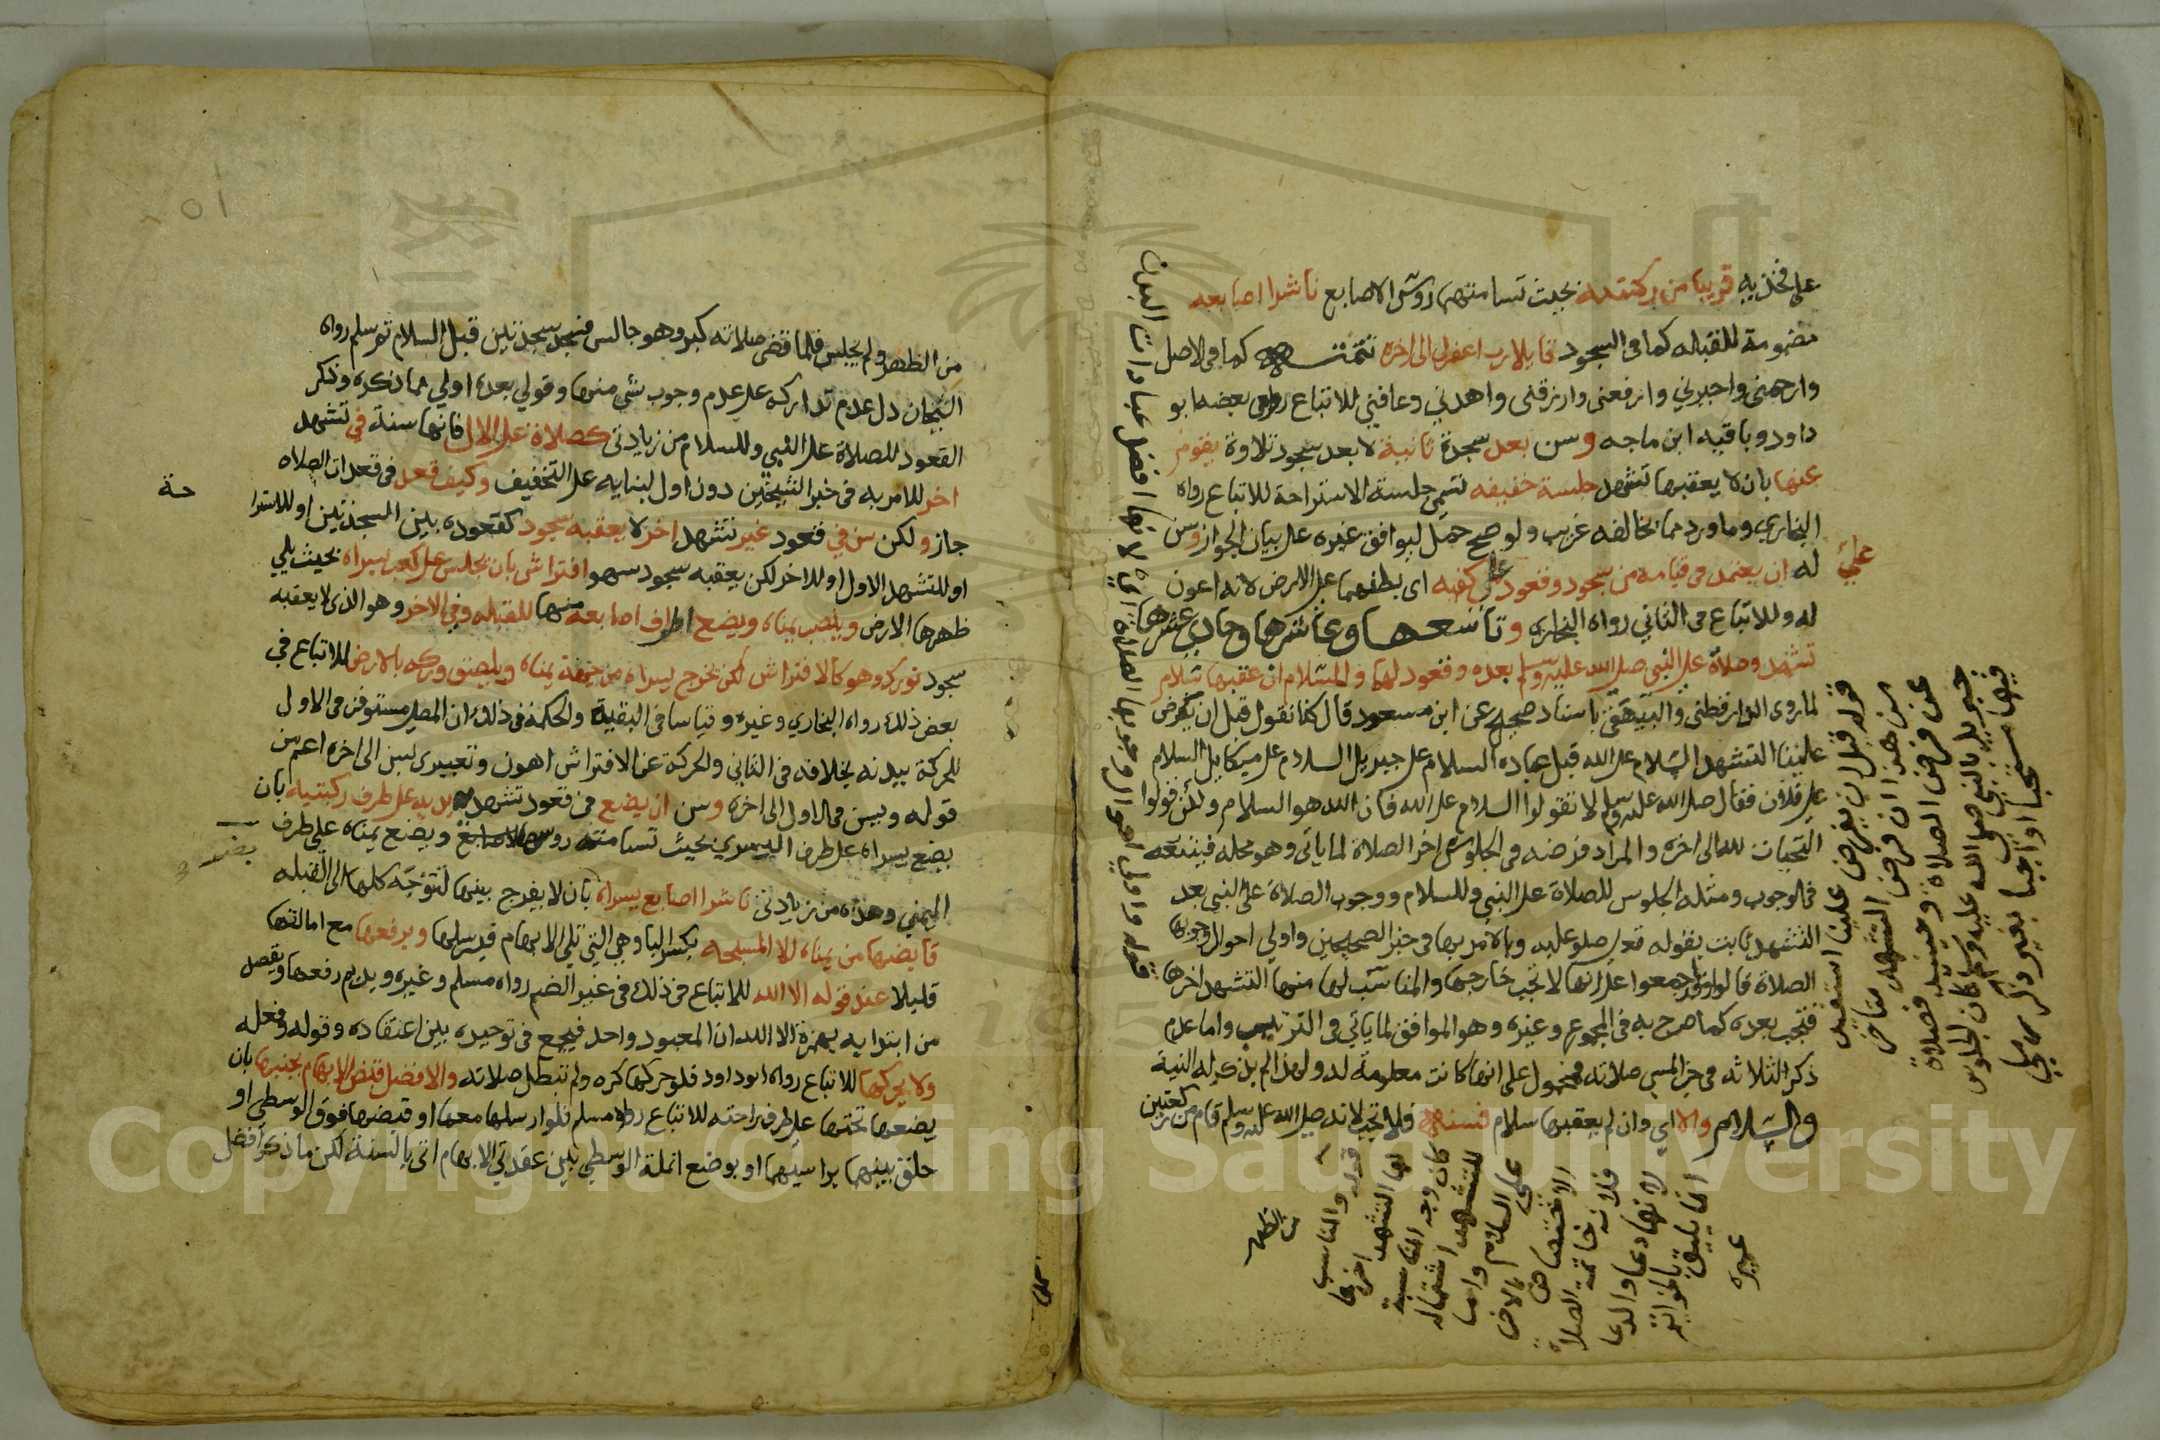 على فخذيه قريبا من ركبتيه بحيث تسامتهما رؤس الاصابع ناشرا اصابعه
مضمومة للقبله كما في السجود قايلا رب اغفرلي الى اخره تتمته كما في الاصل
وارحمني واجبرني وارفعني وارزقني واهدني وعافني للاتباع روى بعضه ابو
داود وباقيه ابن ماجه وسن بعد سجدة ثانية لا بعد سجود تلاوة يقوم
عنها بان لا يعقبها تشهد جلسة خفيفه تسمى جلسة الاستراحة للاتباع رواه
البخاري وما ورد مما يخالفه غريب ولو صح حمل ليوافق غيره على بيان الجواز وسن
له ان يعتمد في قيامه من سجود وقعود على كفيه اى بطنهما على الارض لانه اعون
له وللاتباع في الثاني رواه البخارى وتاسعها وعاشرها وحادي عشرها
تشهد وصلاة على النبي صلى الله عليه وسلم بعده وقعود لهما وللسلام ان عقبها سلام
لما روى الدارقطني والبيهقي باسناد صحيح عن ابن مسعود قال كنا نقول قبل ان يفرض
علينا التشهد السلام على الله قبل عباده السلام على جبريل السلام على ميكايل السلام
على فلان فقال صلى الله عليه وسلم لا تقولوا السلام على الله فان الله هو السلام ولكن قولوا
التحيات لله الى اخره والمراد فرضه في الجلوس اخر الصلاة لما ياتي وهو محله فيتبعه
في الوجوب ومثله الجلوس للصلاة على النبي وللسلام ووجوب الصلاة على النبي بعد
التشهد ثابت بقوله تعالى صلو عليه وبالامر بها في خبر الصحيحين واولى احوال وجوبها
الصلاة قالوا وقد اجمعوا على انها لا تجب خارجها والمناسب لها منها التشهد اخرها
فتجب بعده كما صرح به في المجموع وغيره وهو الموافق لما ياتي في الترتيب واما عدم
ذكر الثلاثه في خبر المسي صلاته فمحمول على انها كانت معلومة له ولهذا لم يذكر له النية
والسلام والا اي وان لم يعقبها سلام فسنة فلا تجب لانه صلى الله عليه وسلم قام من ركعتين
على
قوله واولى احوال وجوبها الصلاة اي لانها افضل عبادات البدن
قوله قبل ان يفرض علينا استفيد
من هذا ان فرض التشهد متاخر
عن فرض الصلاة وحينيذ فصلاة
جبريل بالنبي صلى الله عليه وسلم كان الجلوس
فيها مستحبا او واجبا بغير ذكر رملي
قوله والمناسب
لها التشهد اخرها
كان وجه المناسبة
للتشهد اشتماله
على السلام واما
الاختصاص بالاخر
فلانه خاتمة الصلاة
لانها دعا والدعا
انما يليق بالخواتم
عميره
من الظهر
من الظهر ولم يجلس فلما قضى صلاته كبر وهو جالس فسجد سجدتين قبل السلام ثم سلم رواه
الشيخان دل عدم تداركه على عدم وجوب شى منها وقولي بعده اولى مما ذكره وذكر
القعود للصلاة على النبي وللسلام من زيادتى كصلاة على الال فانها سنة في تشهد
اخر للامر به في خبر الشيخين دون اول لبنايه على التخفيف وكيف قعد في قعدات الصلاه
جاز ولكن سن في قعود غير تشهد اخر لا يعقبه سجود كقعوده بين السجدتين او للاسترا
حة
او للتشهد الاول او للاخر لكن يعقبه سجود سهو افتراش بان يجلس على كعب يسراه بحيث يلي
ظهرها الارض وينصب يمناه ويضع اطراف اصابعه منها للقبله وفي الاخر وهو الذى لا يعقبه
سجود تورك وهو كالافتراش لكن يخرج يسراه من جهة يمناه ويلصق وركه بالارض للاتباع في
بعض ذلك رواه البخاري وغيره وقياسا في البقية والحكمة في ذلك ان المصلي مستوفز في الاول
للحركة بيدنه بخلافه في الثاني والحركة عن الافتراش اهون وتعبيرى بسن الى اخره اعم من
قوله ويسن في الاول الى اخره وسن ان يضع في قعود تشهد يديه على طرف ركبتيه بان
يضع يسراه على طرف اليسرى بحيث تسامته رؤس الاصابع ويضع يمناه على طرف
اليمني وهذه من زيادتي ناشرا اصابع يسراه بان لا يفرج بينها لتتوجه كلها الى القبله
قابضها من يمناه الا المسبحه بكسر البا وهي التي تلي الابهام فيرسلها ويرفعها مع امالتها
قليلا عند قوله الا الله للاتباع في ذلك في غير الضم رواه مسلم وغيره ويديم رفعها ويقصد
من ابتدايه بهمزة الا الله ان المعبود واحد فيجمع في توحيده بين اعتقاده وقوله وفعله
ولا يحركها للاتباع رواه ابو داود فلو حركها كره ولم تبطل صلاته والافضل قبض الابهام بجنبها بان
يضعها تحتها على طرف راحته للاتباع رواه مسلم فلو ارسلها معها او قبضها فوق الوسطى او
حلق بينهما براسيهما او بوضع انملة الوسطى بين عقدتي الابهام اتى بالسنة لكن ما ذكر افضل
Copyright © King Saud University